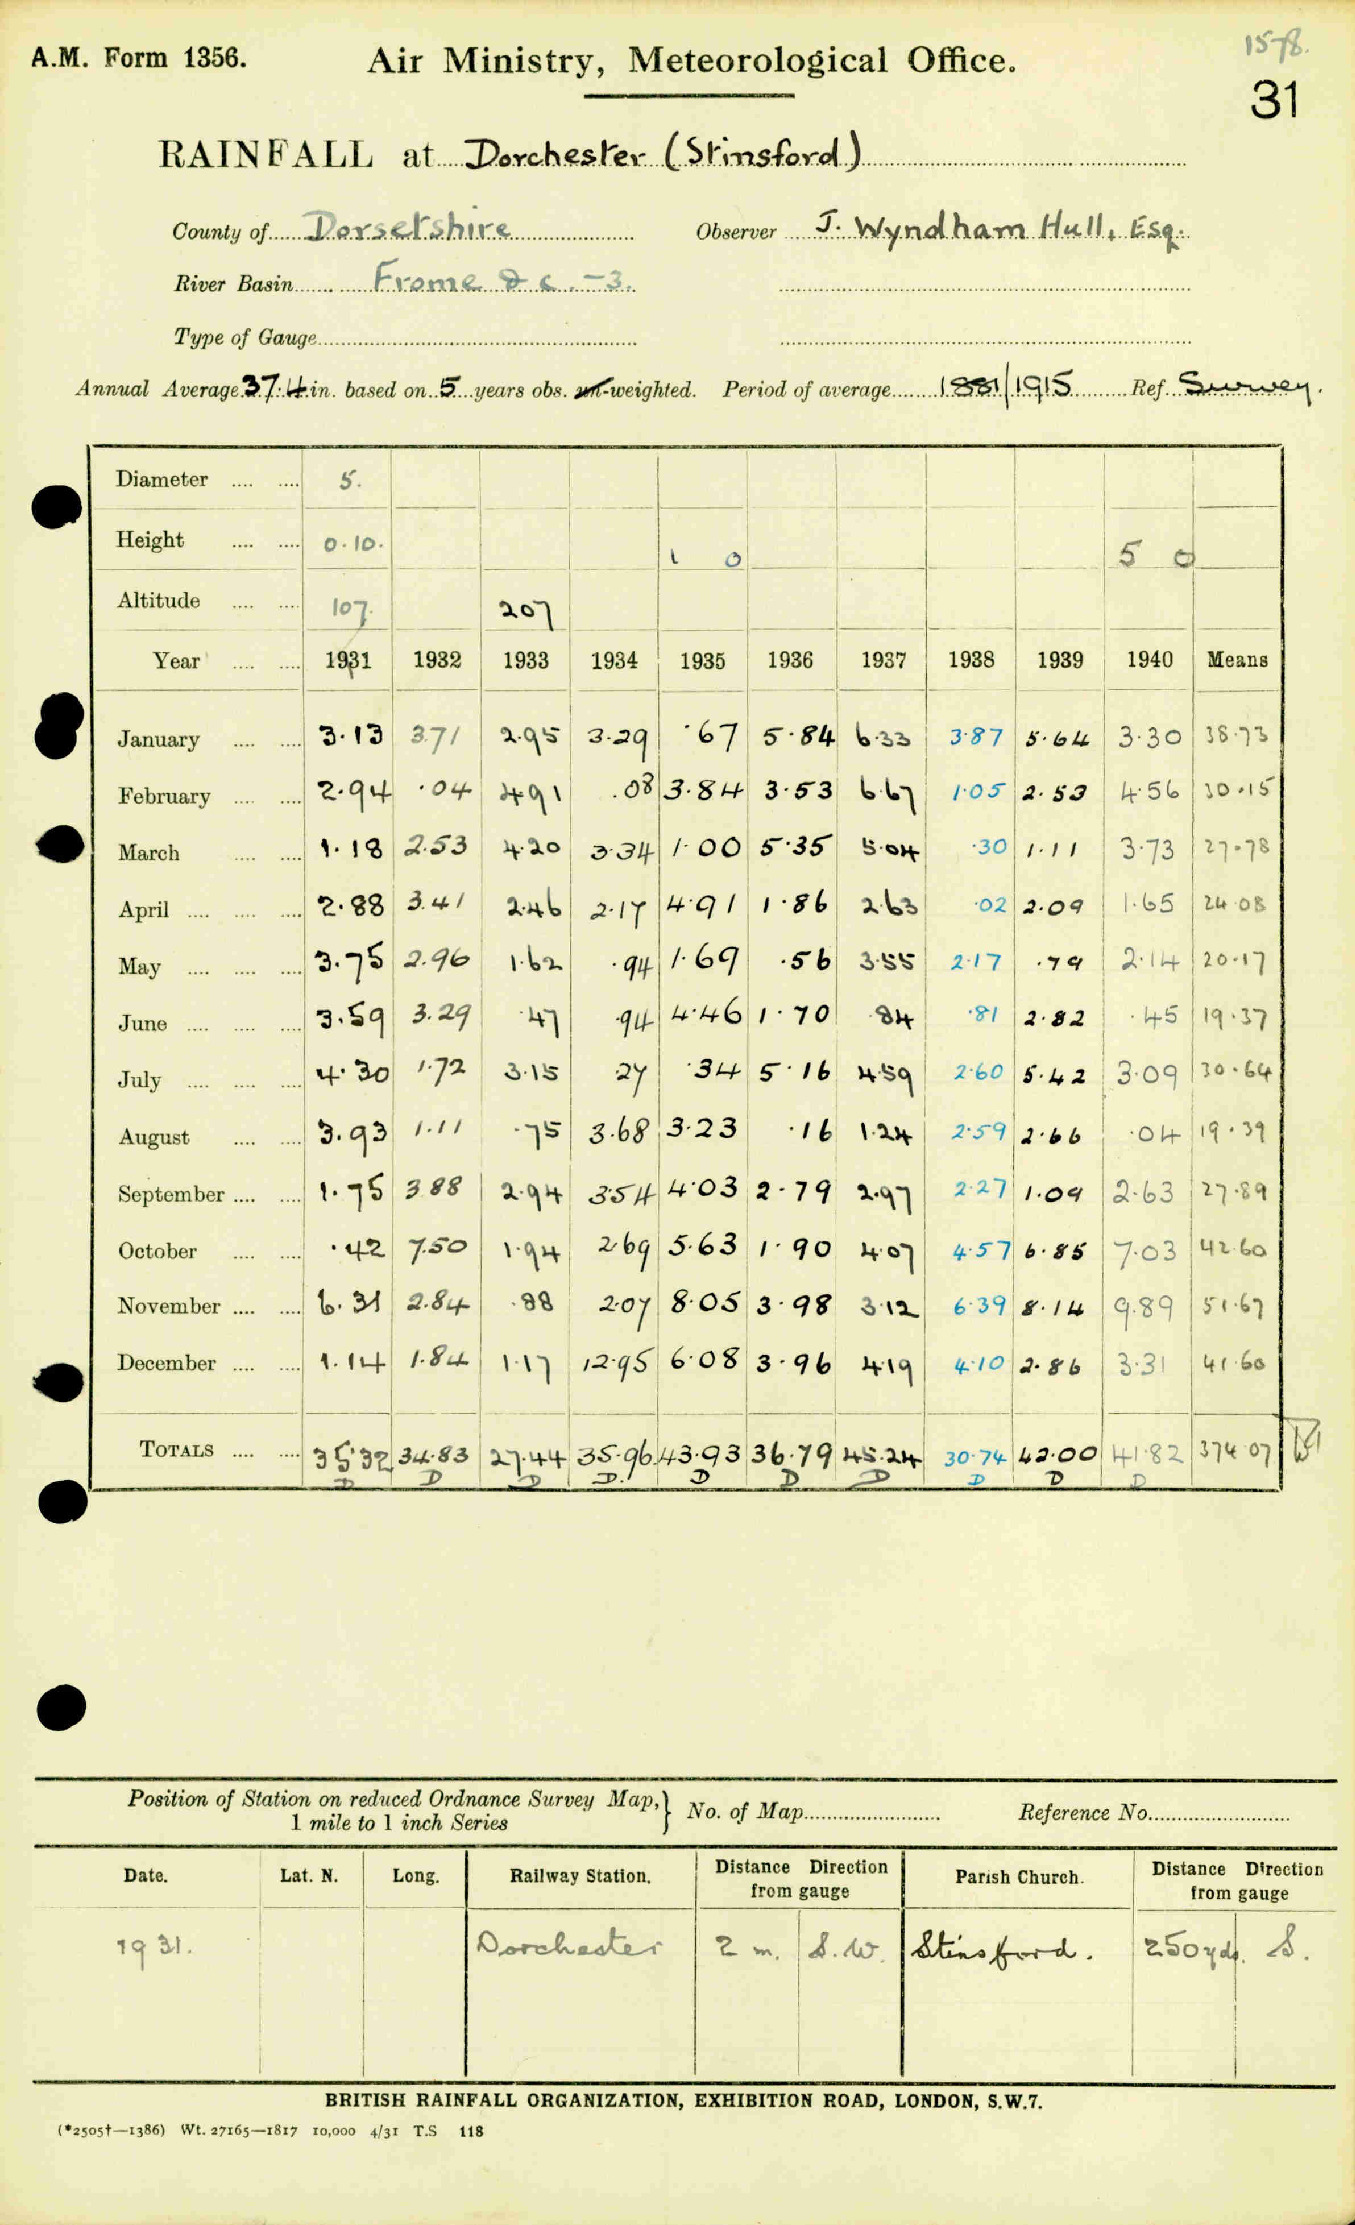 A.M. Form 1356. Air Ministry, Meteorological Office. 1578.
31
RAINFALL at Dorchester (Stinsford)
County of Dorsetshire Observer J. Wyndham Hull, Esq.
River Basin Frome & c. -3.
Type of Gauge
Annual Average 37.4 in. based on 5 years obs. un-weighted. Period of average 1881/1915 Ref. Survey.
Diameter .... .... 5.
Height .... .... 0.10. 1 0 5 0
Altitude .... .... 107. 207
Year .... .... 1931 1932 1933 1934 1935 1936 1937 1938 1939 1940 Means
January .... .... 3.13 3.71 2.95 3.29 .67 5.84 6.33 3.87 5.64 3.30 38.73
February .... .... 2.94 .04 4.91 .08 3.84 3.53 6.67 1.05 2.53 4.56 30.15
March .... .... 1.18 2.53 4.20 3.34 1.00 5.35 5.04 .30 1.11 3.73 27.78
April .... .... .... 2.88 3.41 2.46 2.17 4.91 1.86 2.63 .02 2.09 1.65 24.08
May .... .... .... 3.75 2.96 1.62 .94 1.69 .56 3.55 2.17 .79 2.14 20.17
June .... .... .... 3.59 3.29 .47 .94 4.46 1.70 .84 .81 2.82 .45 19.37
July .... .... .... 4.30 1.72 3.15 .27 .34 5.16 4.59 2.60 5.42 3.09 30.64
August .... .... 3.93 1.11 .75 3.68 3.23 .16 1.24 2.59 2.66 .04 19.39
September .... .... 1.75 3.88 2.94 3.54 4.03 2.79 2.97 2.27 1.09 2.63 27.89
October .... .... .42 7.50 1.94 2.69 5.63 1.90 4.07 4.57 6.85 7.03 42.60
November .... .... 6.31 2.84 .88 2.07 8.05 3.98 3.12 6.39 8.14 9.89 51.67
December .... .... 1.14 1.84 1.17 12.95 6.08 3.96 4.19 4.10 2.86 3.31 41.60
TOTALS .... .... 35.32 34.83 27.44 35.96 43.93 36.79 45.24 30.74 42.00 41.82 374.07
D D D D. D D D D D D
Position of Station on reduced Ordnance Survey Map,} No. of Map Reference No.
1 mile to 1 inch Series
Date. Lat. N. Long. Railway Station. Distance Direction from gauge Parish Church. Distance Direction from gauge
1931. Dorchester 2 m. S.W. Stinsford. 250 yds. S.
BRITISH RAINFALL ORGANIZATION, EXHIBITION ROAD, LONDON, S.W.7.
(*2505†—1386) Wt. 27165—1817 10,000 4/31 T.S 118